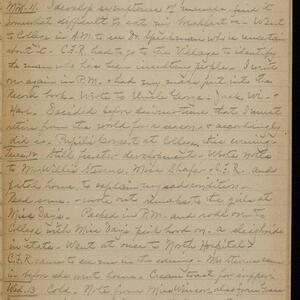 Mon. 11. I develop symptoms of mumps - find it
somewhat difficult to eat my breakfast. Went
to College in A.M. to see Dr. Speakman who is uncertain
about it - C.F.R. had to go to the Village to identify
the man who has been insulting girls. I went
on again in P.M. & had my marks put into the
Record book. Wrote to Uncle Geo. - Jack, Wi - &
Har. Decided before dinner-time that I must
retire from the world for a season & accordingly
did so. Pupils' Concert at College this evening
Tues. 12 Still greater development. Wrote notes
to Mr. Willis, Stearns, Miss Shafer, C.F.R. and
got home, to explain my sad condition.
Read some. - wrote out remarks to the girls at
Miss Day's. Packed in P.M. and rode on to
College with Miss Day's pink hood on. a sleighride
in state. Went at once to North Hospital &
C.F.R. came to see me in the evening - Mrs. Stearns came
in before she went home. Cream toast for supper
Wed. 13 Cold. Note from Miss Whiton, also from Grace